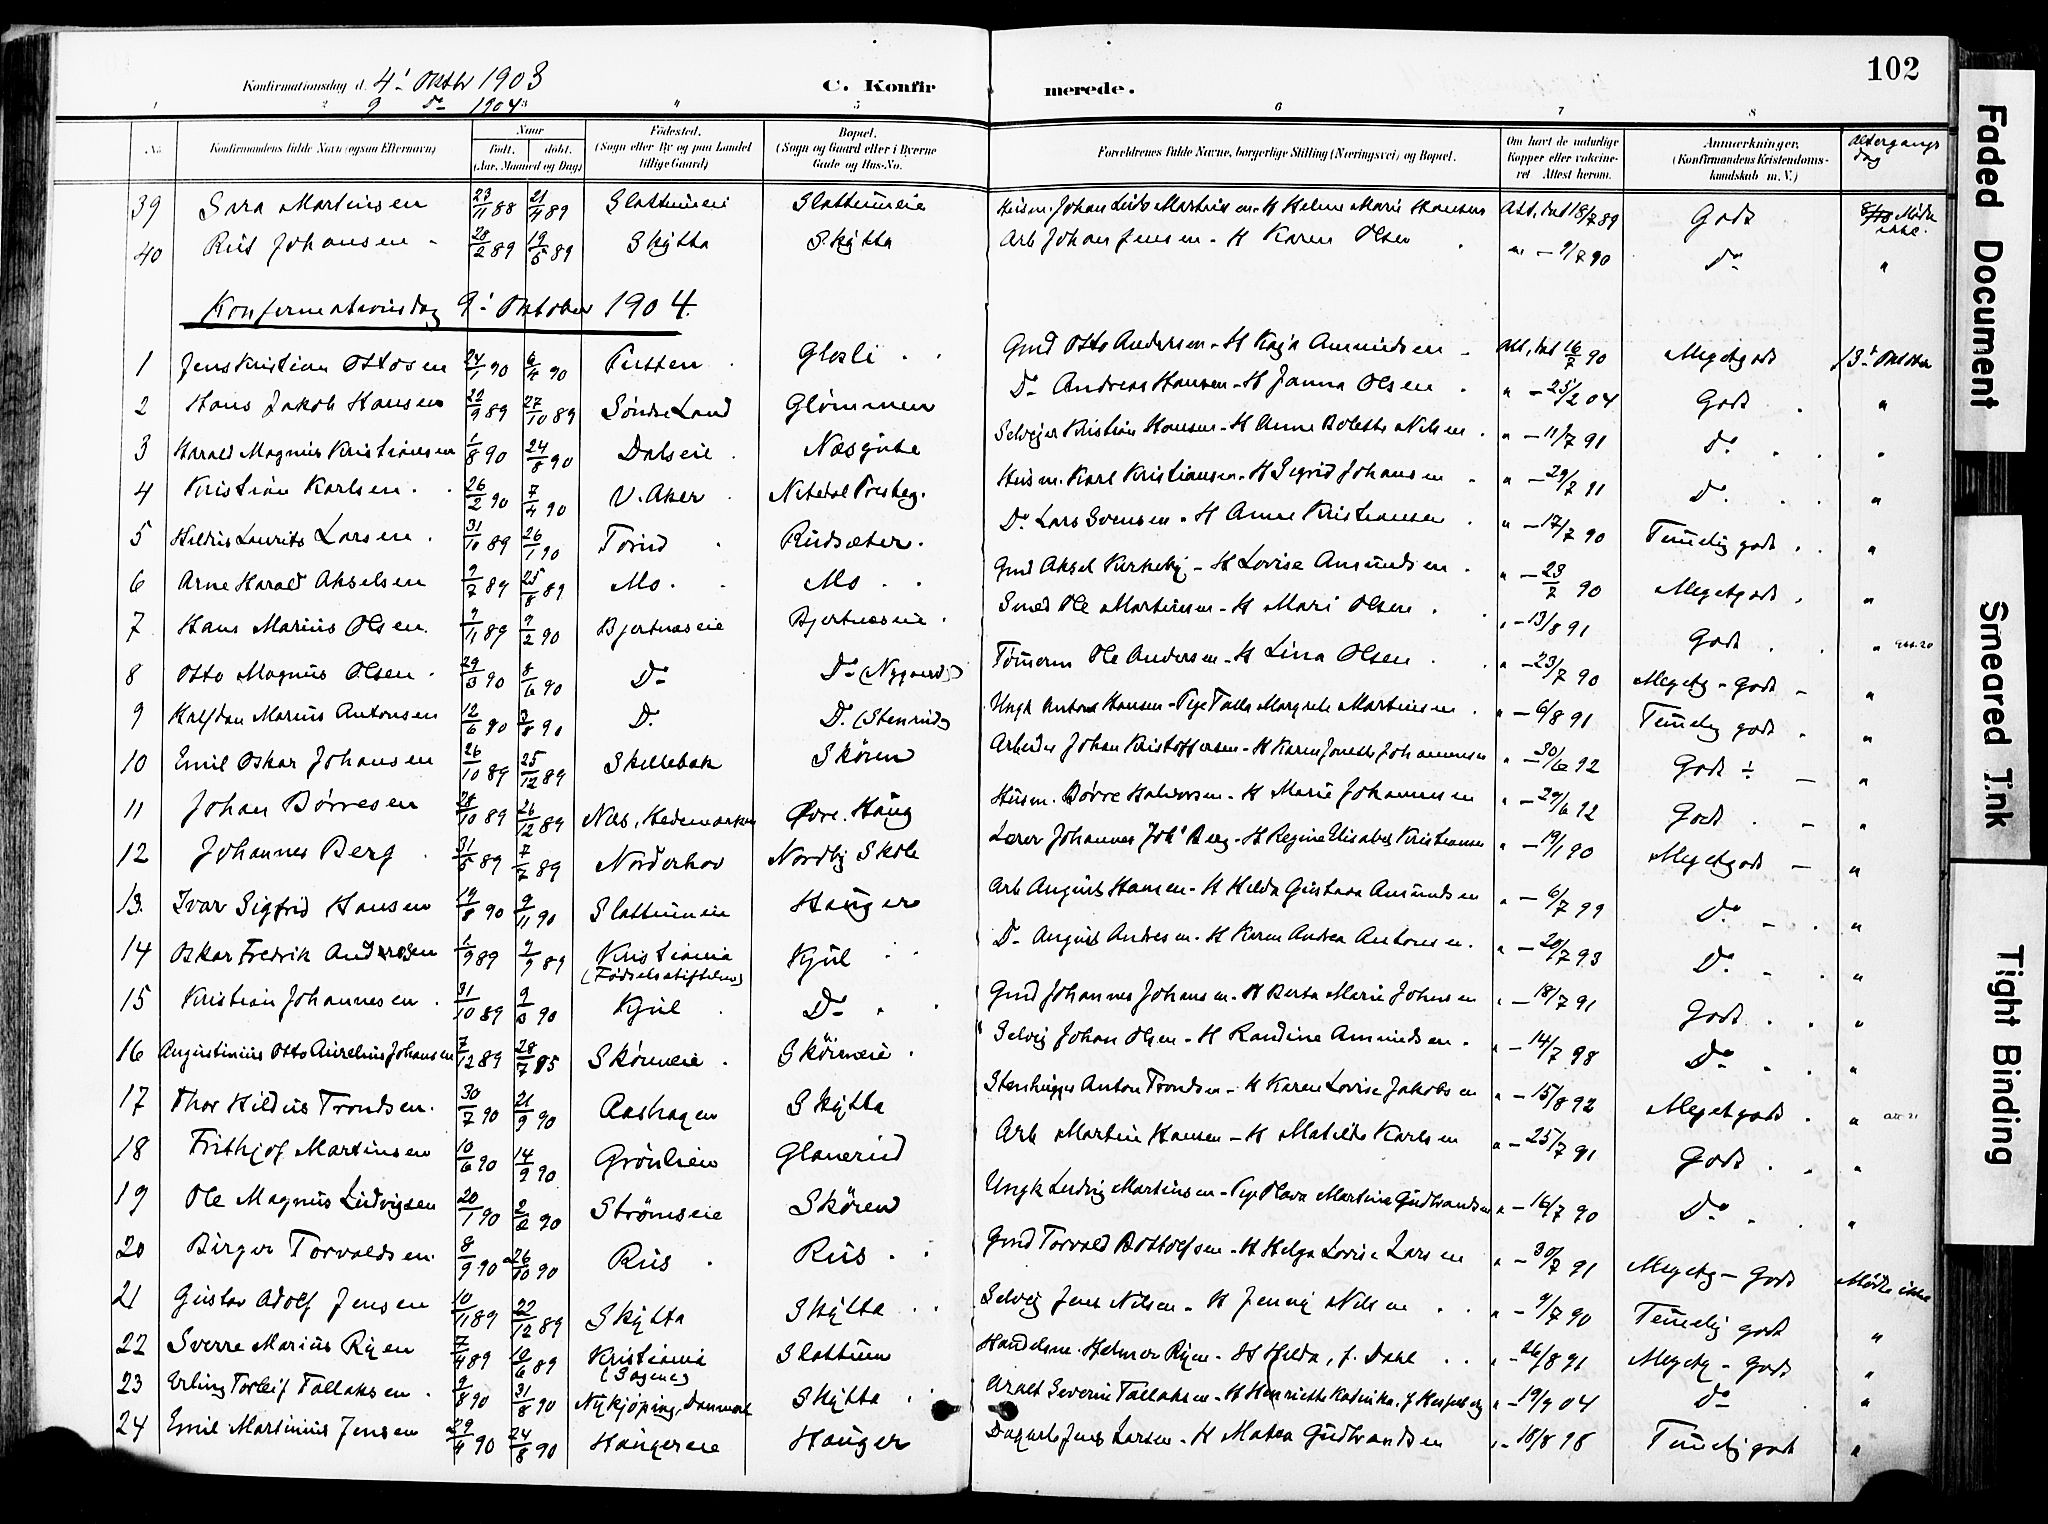 Konfirmationsdag d. 4' Oktbr 1903
9 Do 1904
C. Konfirmerede.
102
No.
Konfirmandens fulde Navn (ogsaa Efternavn)
Naar
født. døbt.
(Aar, Maaned og Dag)
Fødested.
(Sogn eller By og paa Landet tillige Gaard)
Bopæl.
(Sogn og Gaard eller i Byerne Gade og Hus-No.
Forældrenes fulde Navne, borgerlige Stilling (Næringsvei) og Bopæl.
Om havt de naturlige Kopper eller vaccineret. Attest herom.
Anmærkninger.
(Konfirmandens Kristendomskundskab m. V.)
Altergangsdag
39 Sara Martinsen 23/11 88 21/4 89 Slattumeie Slattumeie Husm. Johan Martinsen - H Helene Marie Hansen Att. dat 18/7 89 Godt Mödte ikke.
40 Rus Johansen 28/2 89 19/5 89 Skytta Skytta Arb Johan Jensen - H Karen Olsen " - 9/7 90 Do "
Konfirmationsdag 9' Oktober 1904.
1 Jens Kristian Ottosen 24/1 90 6/4 90 Putten Glosli Gmd Otto Andersen - H Kaja Amundsen Att. dat 16/7 90 Megetgodt 13' Oktober
2 Hans Jakob Hansen 22/9 89 27/10 89 Söndre Land Glömmen Do Andreas Hansen - H Janna Olsen " - 25/2 04 Godt "
3 Harald Magnus Kristiansen 1/8 90 24/8 90 Dalseie Næsgute Selveier Kristian Hansen - H Anne Bolette Nilsen " - 11/7 91 Do "
4 Kristian Karlsen 26/2 90 7/4 90 V. Aker Nitedal Presteg. Husm. Karl Kristiansen - H Sigrid Johansen " - 29/7 91 Do "
5 Hildus Laurits Larsen 31/10 89 26/1 90 Torud Rudsæter Do Lars Svensen - H Anne Kristiansen " - 17/7 90 Temelig godt "
6 Arne Harald Akselsen 9/7 89 25/8 89 Mo Mo Gmd Aksel Kirkeby - H Lovise Amundsen " - 23/7 90 Megetgodt "
7 Hans Marius Olsen 9/11 89 9/2 90 Bjertnæseie Bjertnæseie Smed Ole Martinsen - H Mari Olsen " - 13/8 91 Godt "
8 Otto Magnus Olsen 29/3 90 8/6 90 Do Do (Nygaard) Tömerm Ole Andersen - H Lina Olsen " - 23/7 90 Megetg - Godt "
9 Halfdan Marius Antonsen 12/6 90 3/8 90 Do Do (Stenrud) Ungk Anton Hansen - Pige Talla Margrete Martinsen " - 6/8 91 Temelig godt "
10 Emil Oskar Johansen 26/10 89 25/12 89 Skillebæk Skören Arbeider Johan Kristoffersen - H Karen Jonette Johannesen " - 30/6 92 Godt ÷ "
11 Johan Börresen 28/10 89 26/12 89 Næs, Hedemarken Övre Haug Husm. Börre Halvorsen - H Marie Johannesen " - 29/6 92 Godt "
12 Johannes Berg 31/5 89 7/7 89 Norderhov Nordby Skole Lærer Johannes Joh' Berg - H Regine Elisabet Kristiansen " - 19/1 90 Megetgodt "
13. Ivar Sigfrid Hansen 19/8 90 9/11 90 Slattumeie Hauger Arb August Hansen - H Hilda Gustava Amundsen " - 6/7 99 Do "
14 Oskar Fredrik Andresen 1/9 89 9/9 89 Kristiania (Födselsstiftelsen) Kjul Do August Andresen - H Karen Andrea Antonsen " - 20/7 93 Do "
15 Kristian Johannesen 31/10 89 9/3 90 Kjul Do Gmd Johannes Johansen - H Berta Marie Johnsen " - 18/7 91 Godt "
16 Augustinius Otto Aurelius Johansen 7/12 89 28/7 95 Skörneie Skörneie Selvej Johan Olsen - H Randine Amundsen " - 14/7 98 Do "
17 Thor Hildus Trondsen 30/7 90 21/9 90 Aashagen Skytta Stenhugger Anton Trondsen - H Karen Lovise Jakobsen " - 15/8 92 Megetgodt "
18 Frithjof Martinsen 10/6 90 14/9 90 Grönlien Glanerud Arb Martin Hansen - H Matilde Karlsen " - 25/7 91 Godt "
19 Ole Magnus Ludvigsen 20/1 90 2/2 90 Strömseie Skören Ungk Ludvig Martinsen - Pige Olava Martine Gudbrandsen " - 16/7 90 Do "
20 Birger Torvaldsen 8/9 90 26/10 90 Rus Rus Gmd Torvald Bottolfsen - H Helga Lovise Larsen " - 30/7 91 Megetg - Godt
21 Gustav Adolf Jensen 10/11 89 22/12 89 Skytta Skytta Selvej Jens Nilsen - H Jenny Nilsen " - 9/7 90 Temelig godt Mödte ikke
22 Sverre Marius Ryen 7/4 89 10/6 89 Kristiania (Sagene) Slattum Handelsm. Helmer Ryen - H Hilda, f. Dahl " - 26/8 91 Megetg - Godt "
23 Erling Torleif Tallaksen 9/8 90 31/8 90 Nykjöping, Danmark Skytta Severin Tallaksen - H Henriette Katinka, f " - 19/9 04 Do "
24 Emil Martinius Jensen 29/4 90 24/8 90 Haugereie Hauger Dagarb Jens Larsen - H Matea Gudbrandsen " - 18/8 98 Temelig godt "
Faded Document
Smeared Ink
Tight Binding